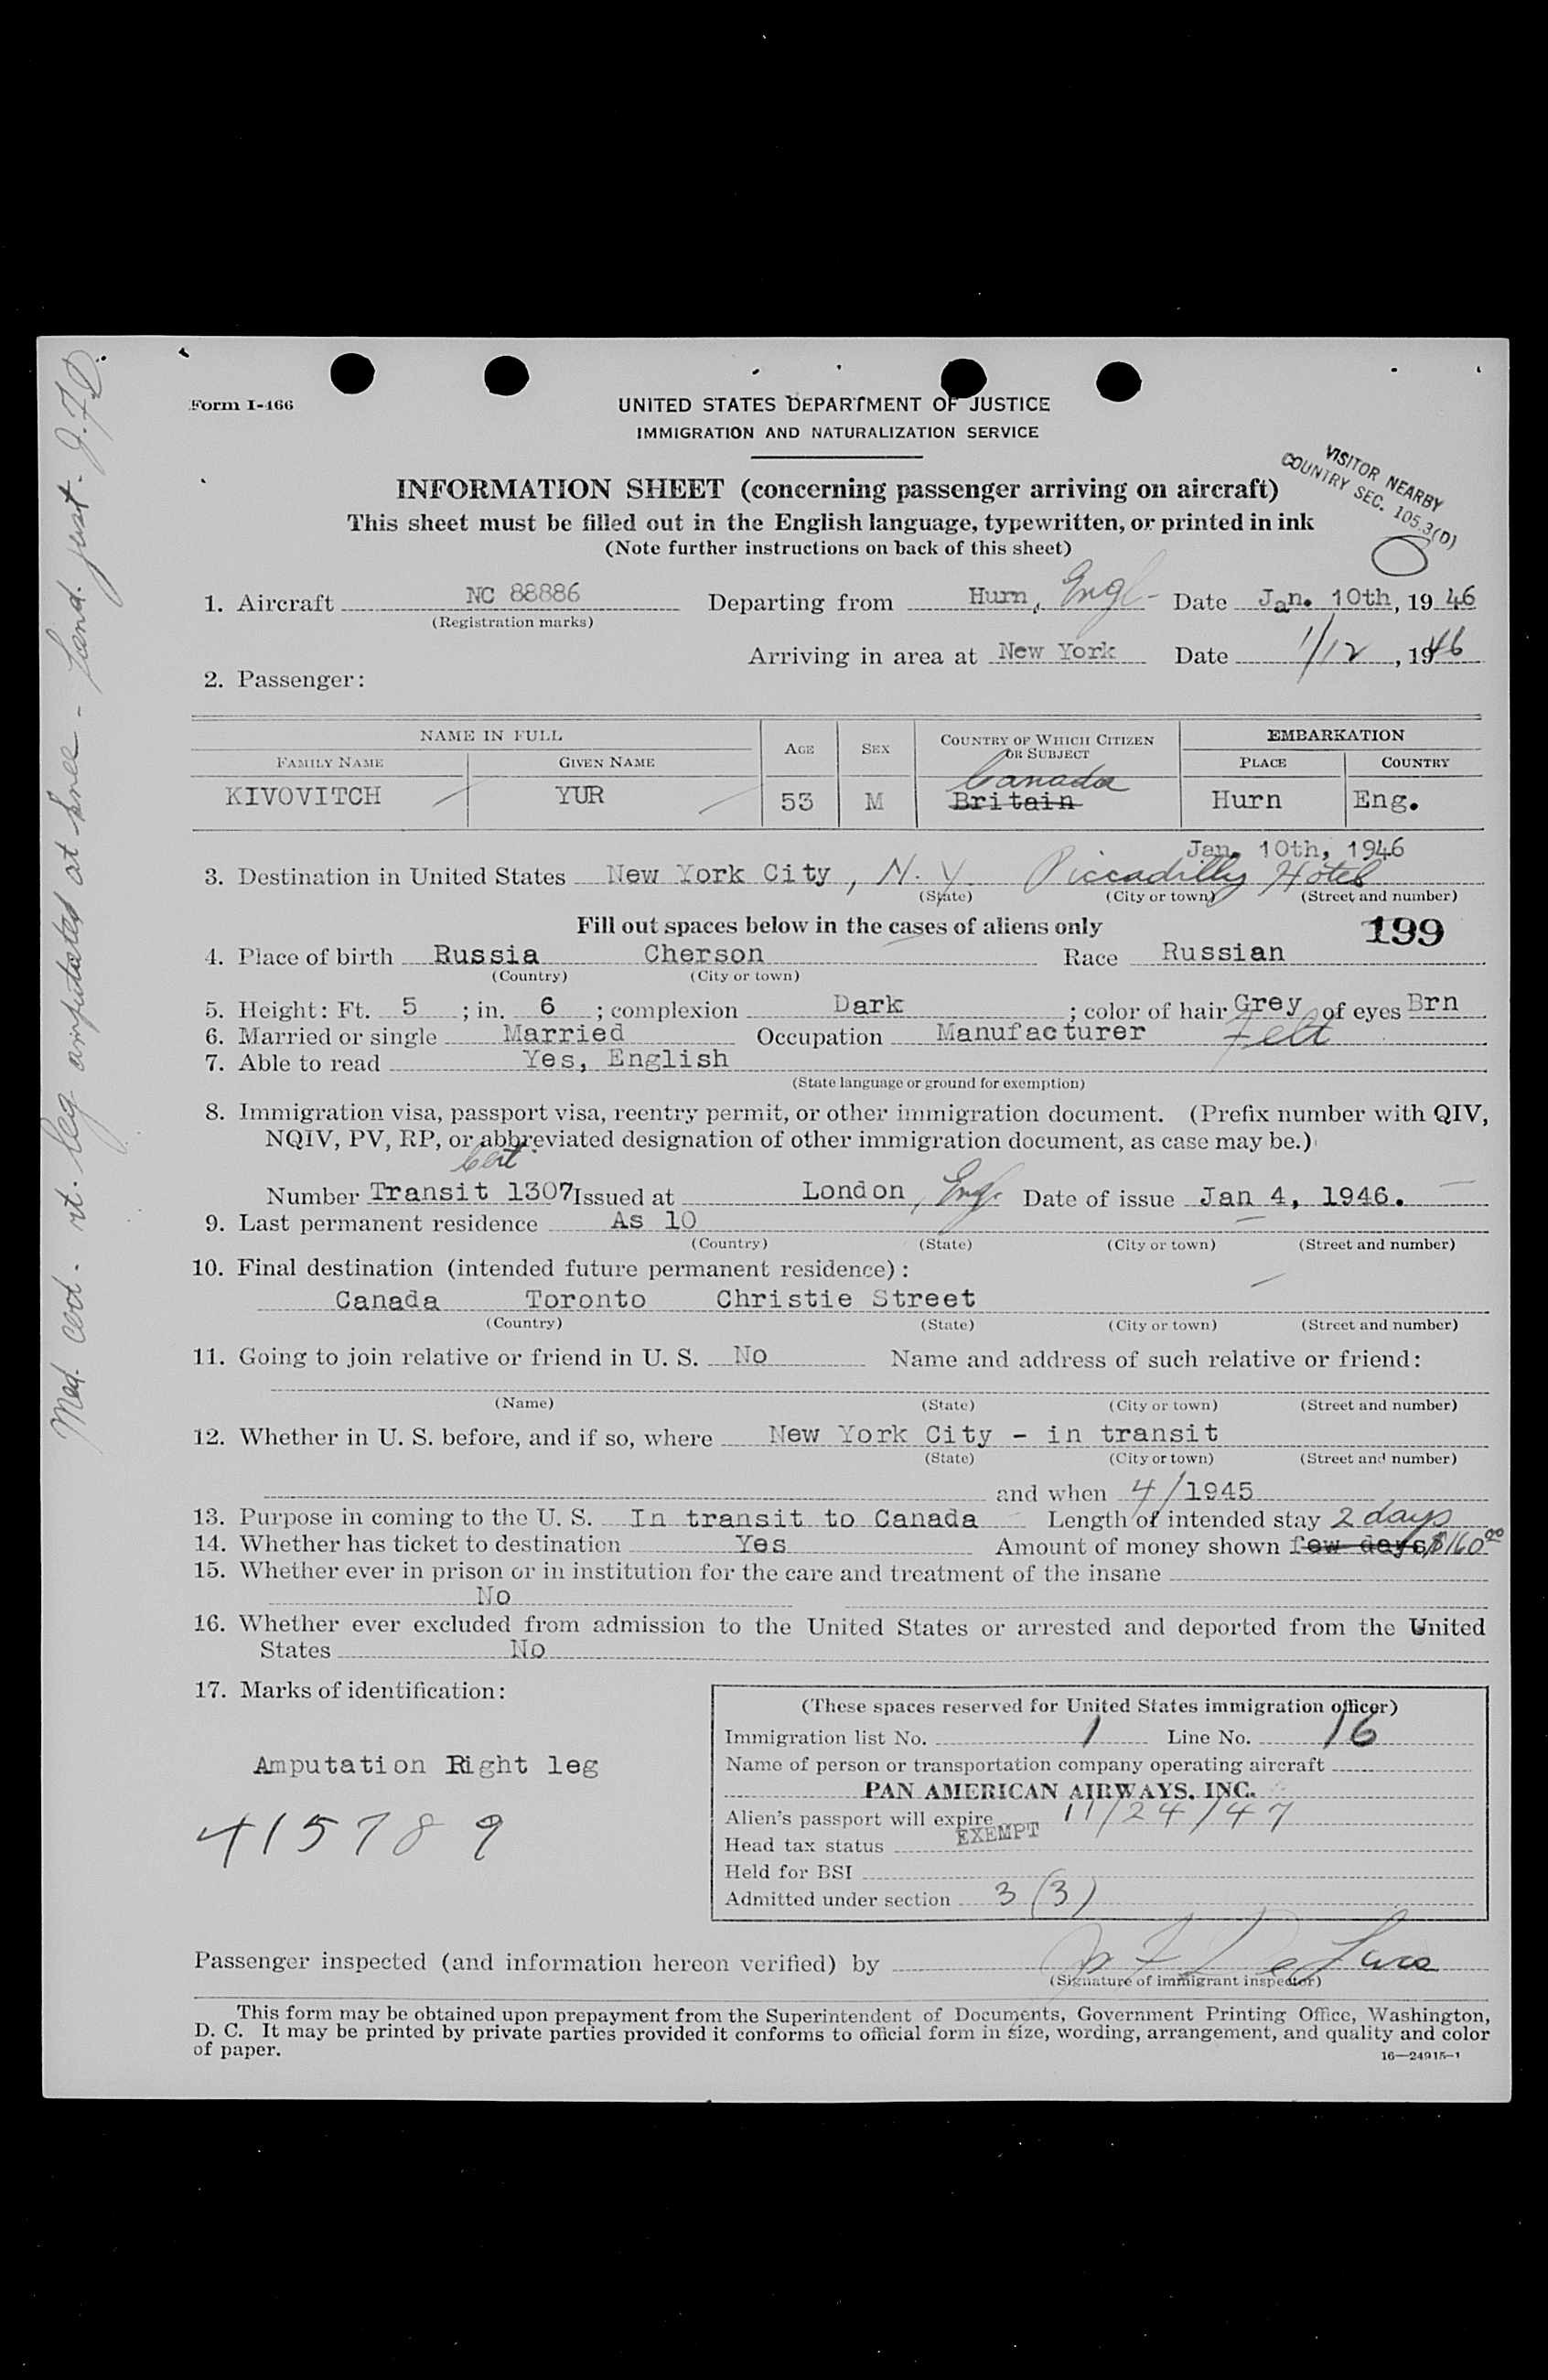 Form I-466
UNITED STATES DEPARTMENT OF JUSTICE
IMMIGRATION AND NATURALIZATION SERVICE
VISITOR NEARBY
COUNTRY SEC. 105.3(D)
INFORMATION SHEET (concerning passenger arriving on aircraft)
This sheet must be filled out in the English language, typewritten, or printed in ink
(Note further instructions on back of this sheet)
1. Aircraft NC 88886 Departing from Hurn, Engl- Date Jan. 10th, 19 46
(Registration marks)
Arriving in area at New York Date 1/12, 1946
2. Passenger:
NAME IN FULL AGE SEX COUNTRY OF WHICH CITIZEN OR SUBJECT EMBARKATION
FAMILY NAME GIVEN NAME PLACE COUNTRY
Canada
KIVOVITCH YUR 53 M Britain Hurn Eng.
Jan. 10th, 1946
3. Destination in United States New York City, N.Y. Piccadilly Hotel
(State) (City or town) (Street and number)
Fill out spaces below in the cases of aliens only 199
4. Place of birth Russia Cherson Race Russian
(Country) (City or town)
5. Height: Ft. 5 ; in. 6 ; complexion Dark ; color of hair Grey of eyes Brn
6. Married or single Married Occupation Manufacturer Felt
7. Able to read Yes, English
(State language or ground for exemption)
8. Immigration visa, passport visa, reentry permit, or other immigration document. (Prefix number with QIV,
NQIV, PV, RP, or abbreviated designation of other immigration document, as case may be.)
Cert.
Number Transit 1307 Issued at London, Engl. Date of issue Jan 4, 1946.
9. Last permanent residence As 10
(Country) (State) (City or town) (Street and number)
10. Final destination (intended future permanent residence):
Canada Toronto Christie Street
(Country) (State) (City or town) (Street and number)
11. Going to join relative or friend in U. S. No Name and address of such relative or friend:
(Name) (State) (City or town) (Street and number)
12. Whether in U. S. before, and if so, where New York City - in transit
(State) (City or town) (Street and number)
and when 4/1945
13. Purpose in coming to the U. S. In transit to Canada Length of intended stay 2 days
14. Whether has ticket to destination Yes Amount of money shown few days $160.00
15. Whether ever in prison or in institution for the care and treatment of the insane
No
16. Whether ever excluded from admission to the United States or arrested and deported from the United
States No
17. Marks of identification:
Amputation Right leg
415789
(These spaces reserved for United States immigration officer)
Immigration list No. 1 Line No. 16
Name of person or transportation company operating aircraft
PAN AMERICAN AIRWAYS, INC.
Alien's passport will expire 11/24/47
Head tax status EXEMPT
Held for BSI
Admitted under section 3(3)
Passenger inspected (and information hereon verified) by
(Signature of immigrant inspector)
This form may be obtained upon prepayment from the Superintendent of Documents, Government Printing Office, Washington,
D. C. It may be printed by private parties provided it conforms to official form in size, wording, arrangement, and quality and color
of paper.
16—24915-1
Med. cert. rt. leg amputated at knee - Sand. just. J.F.D.